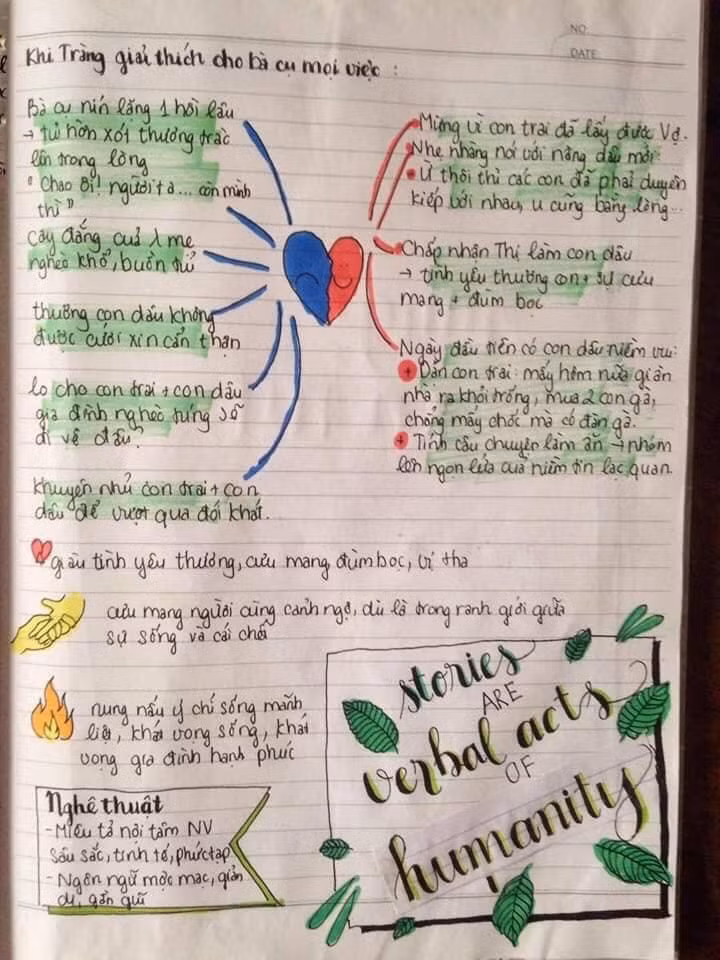 NO
DATE
Khi Tràng giải thích cho bà cụ mọi việc :
Bà cụ nín lặng 1 hồi lâu
→ tủi hờn xót thương trào
lên trong lòng
"Chao ôi! người ta... còn mình
thì"
cay đắng của 1 mẹ
nghèo khổ, buồn tủi
thương con dâu không
được cưới xin cẩn thận
lo cho con trai + con dâu
gia đình nghèo túng sẽ
đi về đâu?
khuyên nhủ con trai + con
dâu để vượt qua đói khát.
Mừng vì con trai đã lấy được Vợ.
Nhẹ nhàng nói với nàng dâu mới:
Ừ thôi thì các con đã phải duyên
kiếp với nhau, u cũng bằng lòng...
Chấp nhận Thị làm con dâu
→ tình yêu thương con + sự cưu
mang + đùm bọc
Ngày đầu tiên có con dâu niềm vui:
+ Dặn con trai: mấy hôm nữa giăn
nhà ra khỏi trống, mua 2 con gà,
chẳng mấy chốc mà có đàn gà.
+ Tính câu chuyện làm ăn → nhóm
lên ngọn lửa của niềm tin lạc quan.
giàu tình yêu thương, cưu mang đùm bọc, vị tha
cưu mang người cùng cảnh ngộ, dù là trong ranh giới giữa
sự sống và cái chết
nung nấu ý chí sống mãnh
liệt, khát vọng sống, khát
vọng gia đình hạnh phúc
Nghệ thuật
- Miêu tả nội tâm NV
sâu sắc, tinh tế, phức tạp
- Ngôn ngữ mộc mạc, giản
dị, gần gũi
stories
ARE
verbal acts
OF
humanity